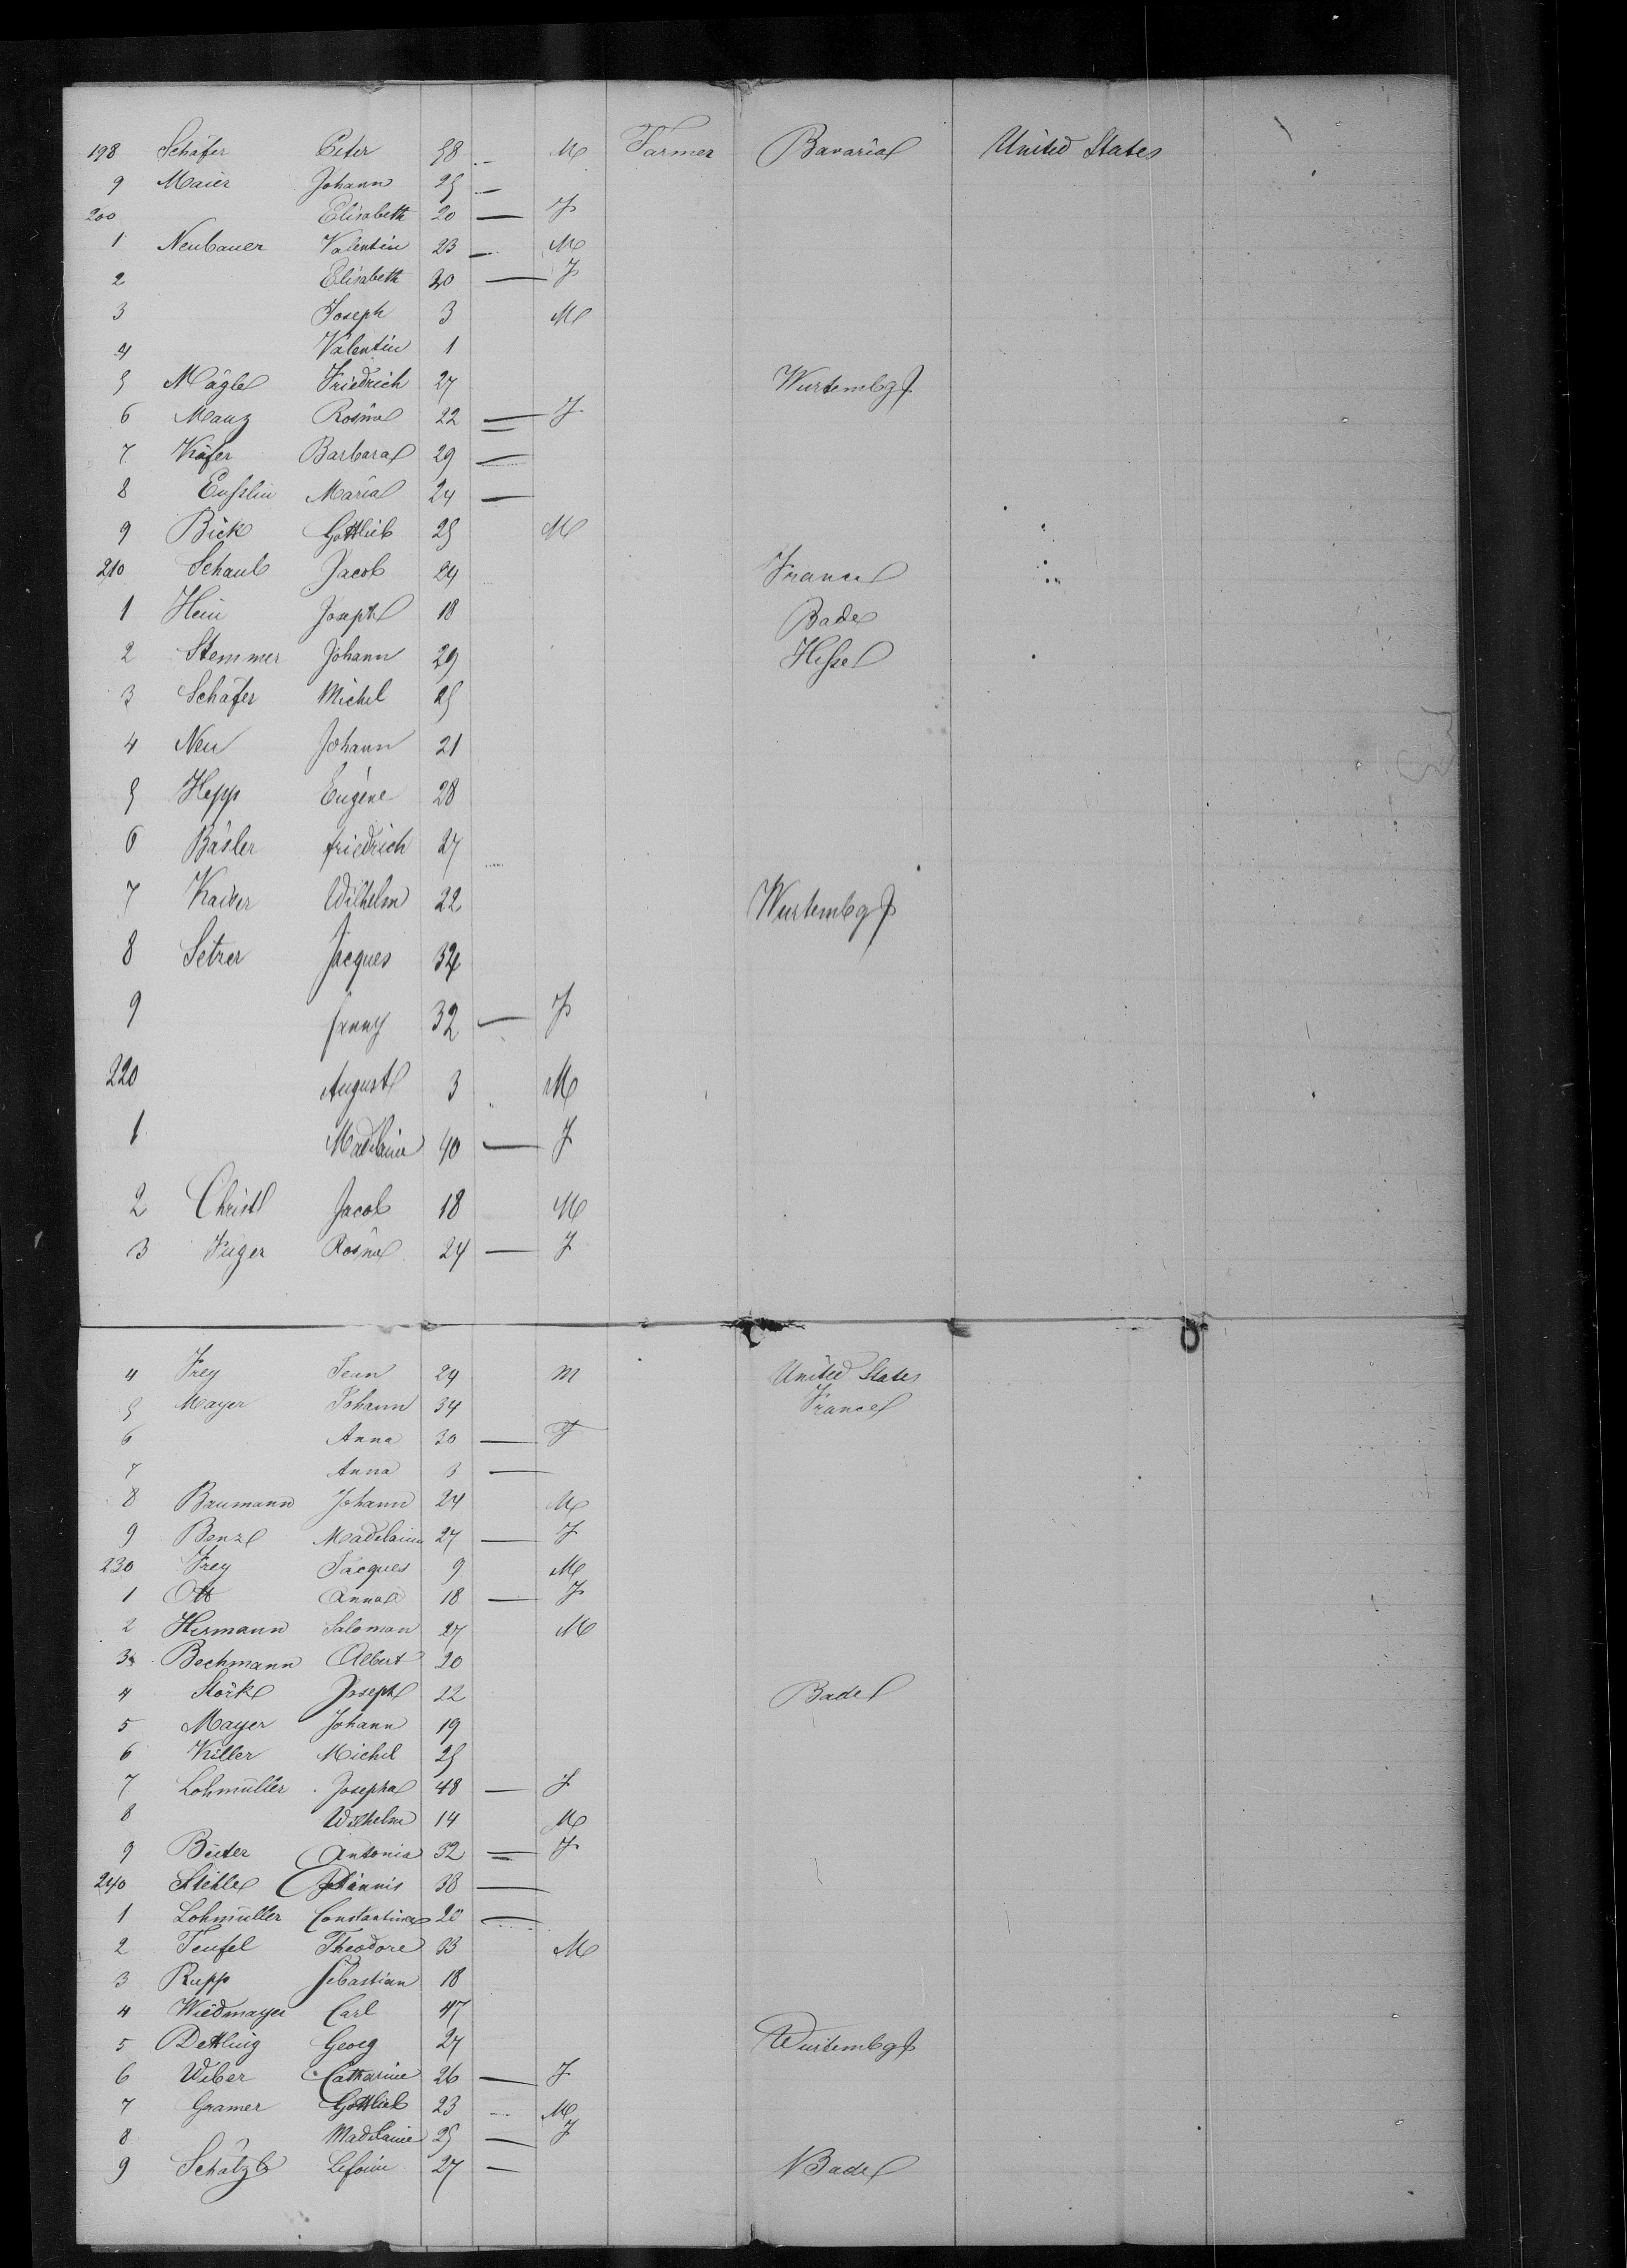 198 Schäfer Peter 38 M Farmer Bavaria United States
9 Maier Johann 25
200 Elisabeth 20 — F
1 Neubauer Valentin 23 M
2 Elisabeth 20 — F
3 Joseph 3 M
4 Valentin 1
5 Mägle Friedrich 27 Wurtembg
6 Manz Rosina 22 — F
7 Käfer Barbara 29 —
8 Enßlin Maria 24 —
9 Bick Gottlieb 25 M
210 Schaub Jacob 24 France
1 Hein Joseph 18 Bade
2 Stemmer Johann 29 Heßel
3 Schäfer Michel 25
4 Neu Johann 21
5 Hepp Eugène 28
6 Bäsler friedrich 27
7 Kaiser Wilhelm 22 Wurtembg
8 Setzer Jacques 32
9 fanny 32 — F
220 August 3 M
1 Madelaine 40 — F
2 Christ Jacob 18 M
3 Rosina 24 — F
4 Frey Jean 24 M United States
5 Mayer Johann 34 France
6 Anna 30 — F
7 Anna 3 —
8 Baumann Johann 24 M
9 Benz Madelaine 27 — F
230 Frey Jacques 9 M
1 Ott Anna 18 — F
2 Hermann Saloman 27 M
3 Bechmann Albert 20
4 Störk Joseph 22 Bade
5 Mayer Johann 19
6 Killer Michel 25
7 Lohmüller Josepha 48 — F
8 Wilhelm 14 M
9 Antonia 32 — F
240 Stehle 38 —
1 Lohmüller Constantina 20 —
2 Teufel Theodore 33 M
3 Rupp Sebastian 18
4 Wiedmayer Carl 47
5 Dettling Georg 27 Wurtembg
6 Weber Catharine 26 — F
7 Gramer Gottlieb 23 M
8 Madelaine 25 — F
9 Schätzle 27 — Bade